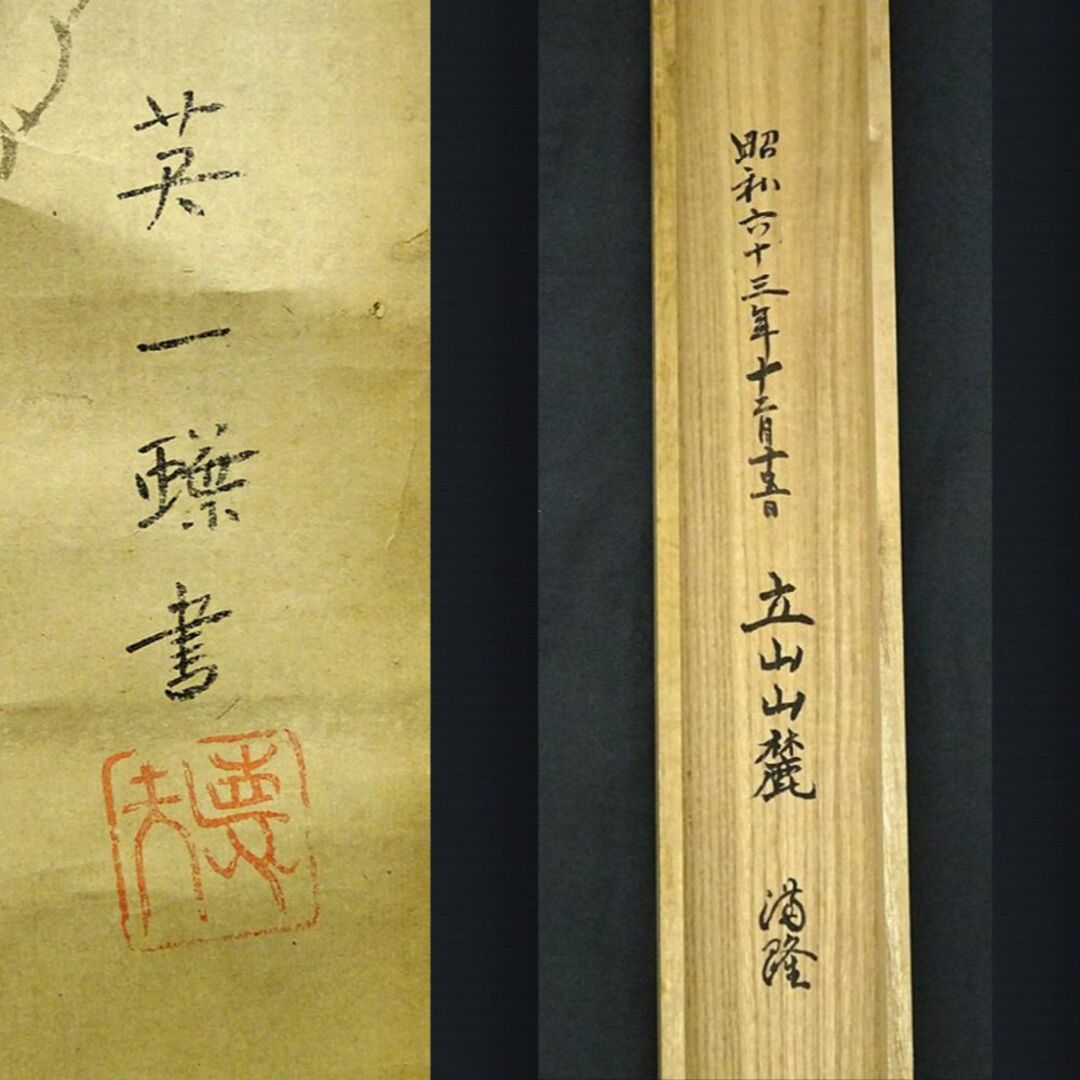 英一蝶書
昭和六十三年十二月十五日 立山山麓 満隆